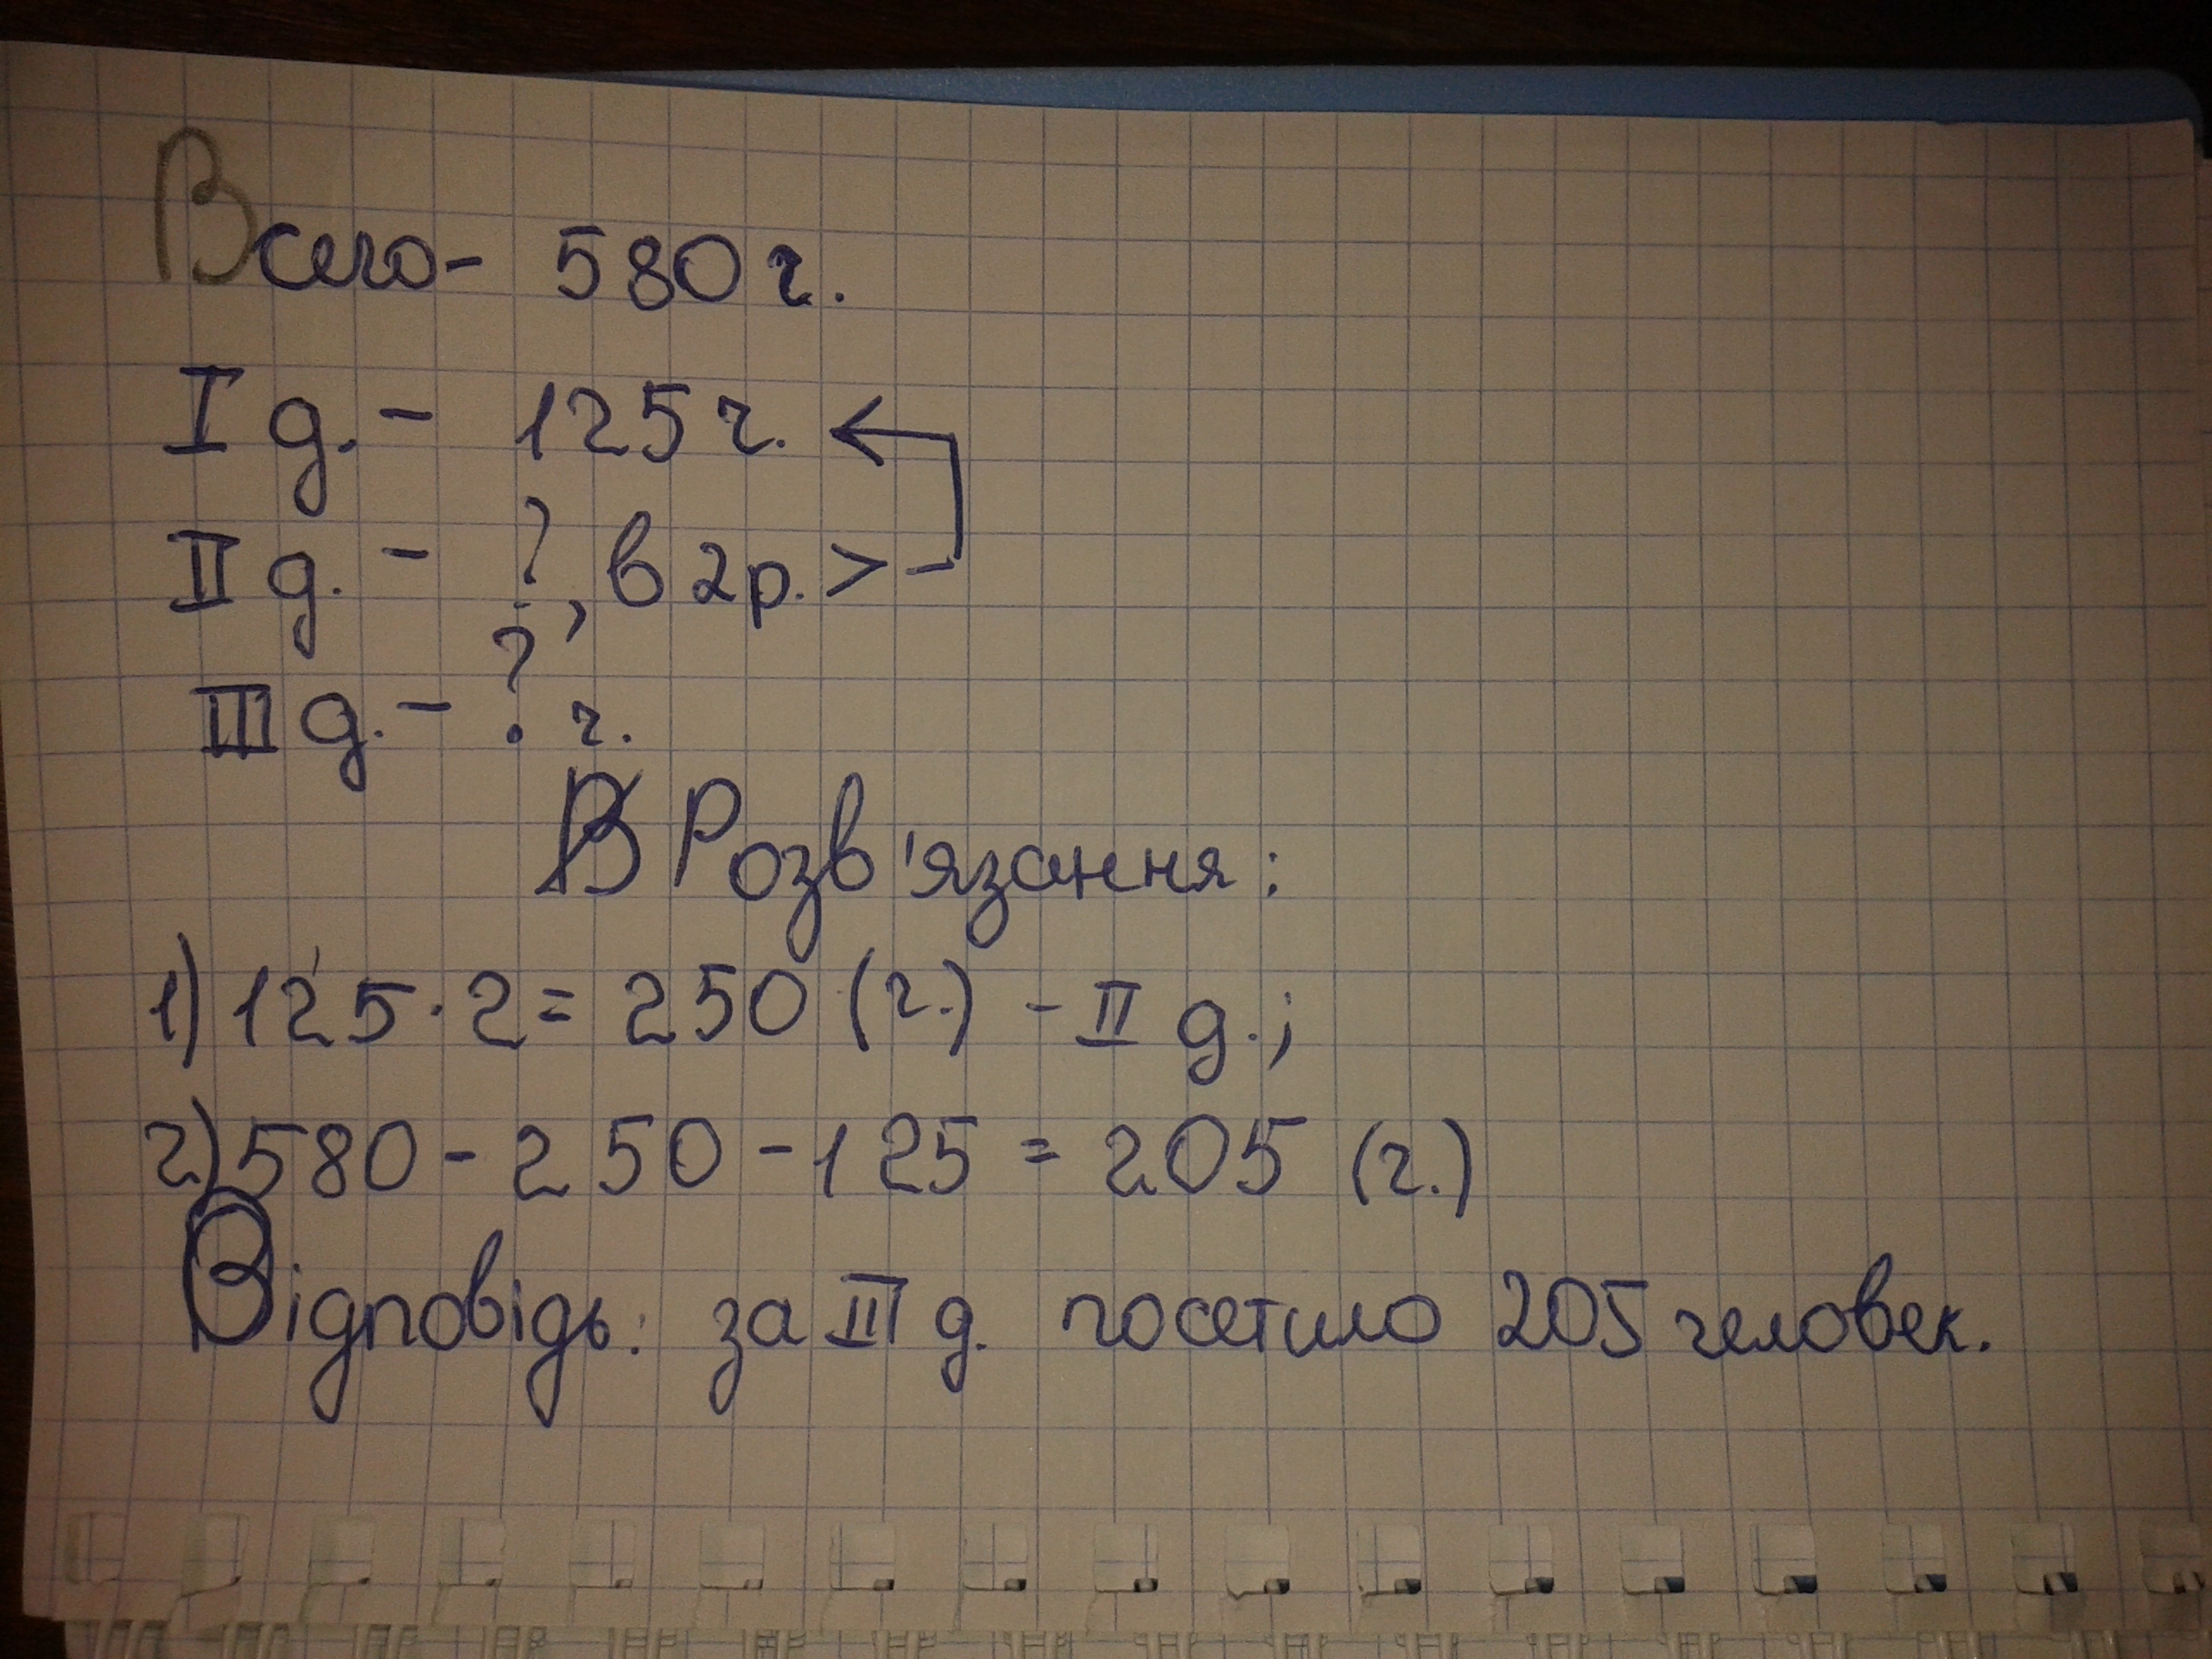 Всего - 580 ч.
I д. - 125 ч.
II д. - ?, в 2 р. > -
III д. - ? ч.
Розв'язання:
1) 125 · 2 = 250 (ч.) - II д.;
2) 580 - 250 - 125 = 205 (ч.)
Відповідь: за III д. посетило 205 человек.